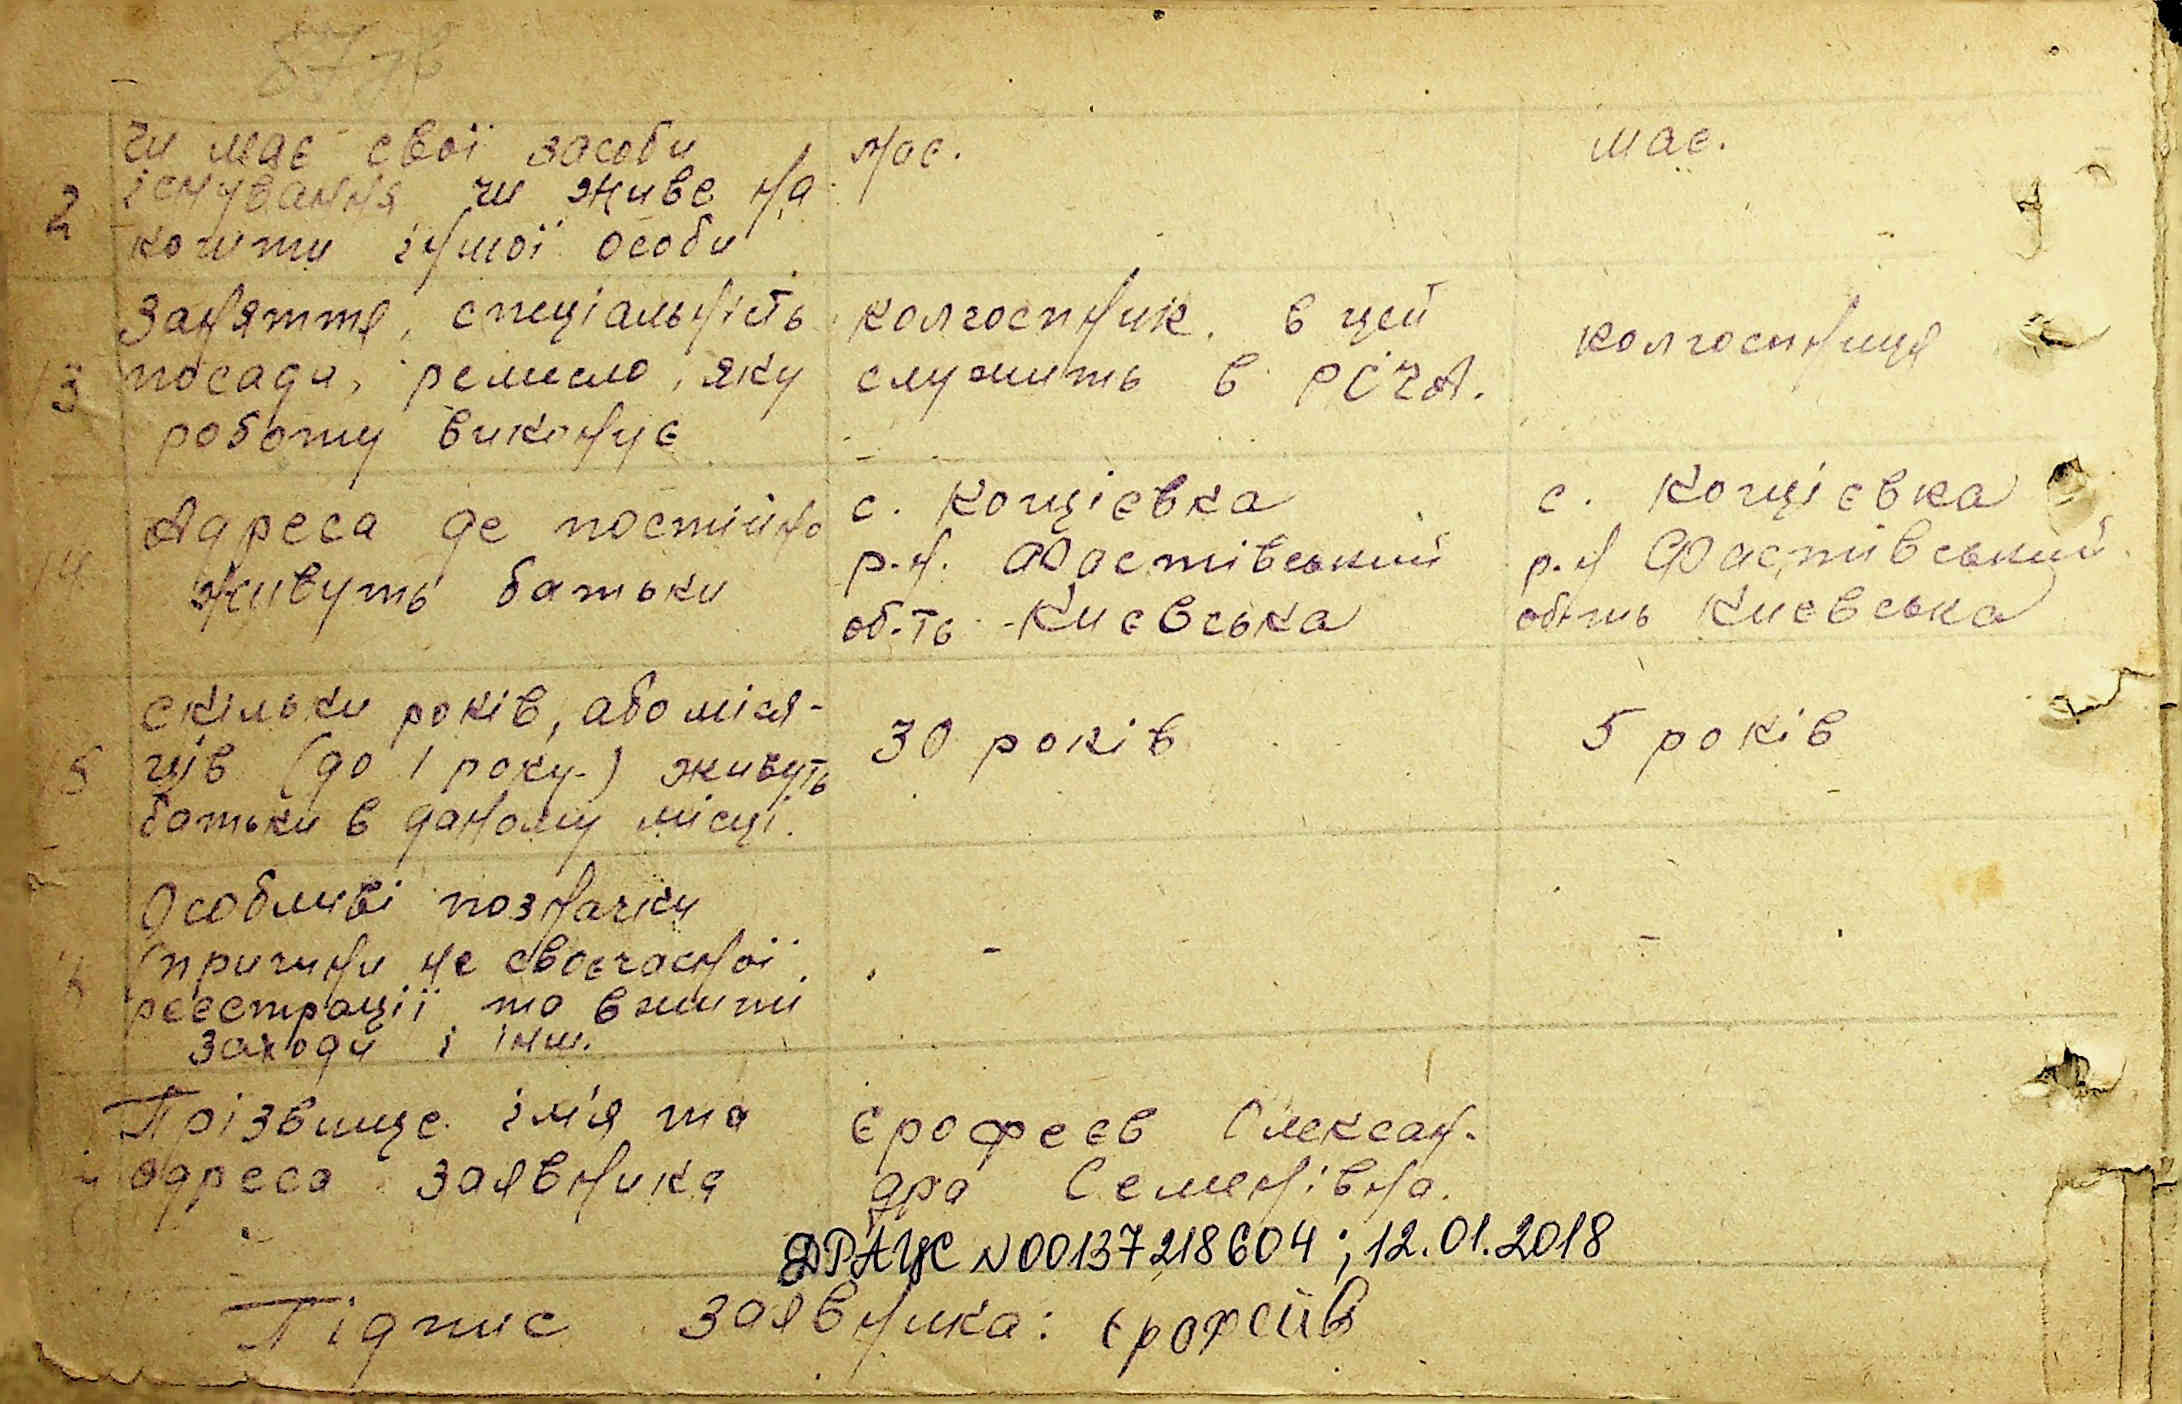 87 зв
чи має свої засоби має. має.
2 існування чи живе на
кошти іншої особи
Заняття, спеціальність колгоспник. в цей колгоспниця
13 посади, ремесло, яку служить в РСЧА.
роботу виконує
Адреса де постійно с. Кощіевка с. Кощіевка
14 живуть батьки р.н. Фастівський р.н Фастівський
об-ть Києвська обть Києвська
скільки років, або міся-
15 ців (до 1 року.) живуть 30 років 5 років
батьки в даному місці.
Особливі позначки
причини не своєчасної - -
реєстрації та вжиті
заходи і інш.
Прізвище імя та Єрофеєв Олексан-
адреса заявника дра Семенівна.
ДРАЦС N00137218604; 12.01.2018
Підпис заявника: